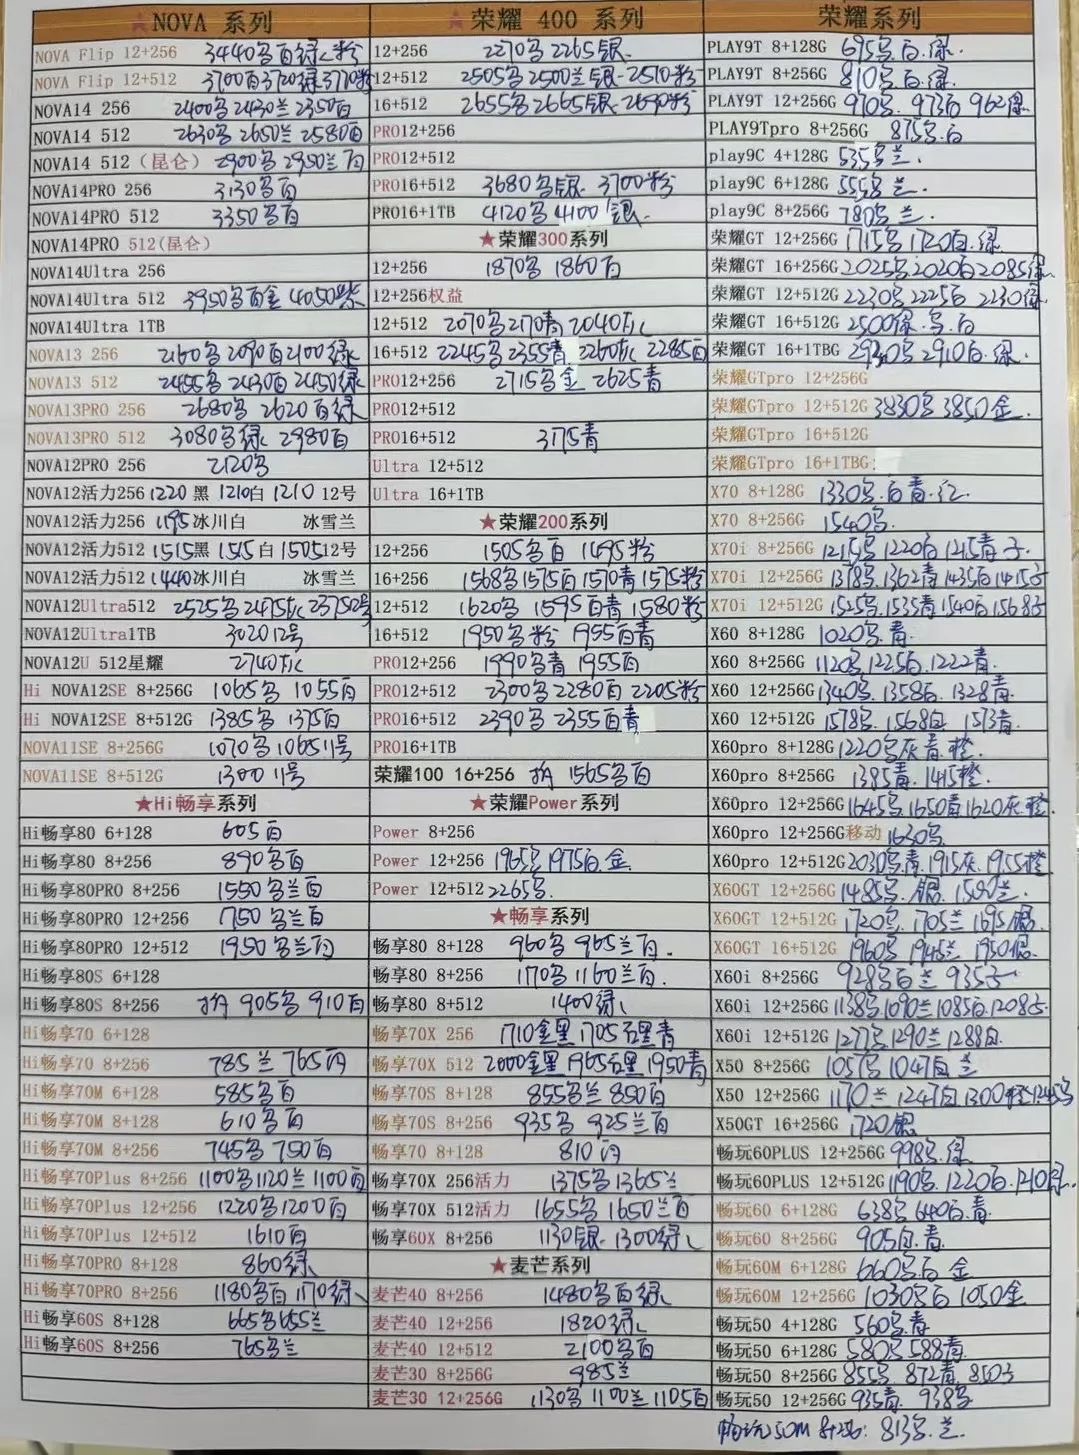 ★NOVA 系列
NOVA Flip 12+256 3440鸟百绿、粉
NOVA Flip 12+512 3700百3720绿3710粉
NOVA14 256 2400鸟2430兰2350百
NOVA14 512 2630鸟2650兰2580百
NOVA14 512（昆仑） 2900鸟2950兰百
NOVA14PRO 256 3130鸟百
NOVA14PRO 512 3350鸟百
NOVA14PRO 512(昆仑)
NOVA14Ultra 256
NOVA14Ultra 512 3950鸟百金4050紫
NOVA14Ultra 1TB
NOVA13 256 2160鸟2090百2100绿
NOVA13 512 2455鸟2430百2450绿
NOVA13PRO 256 2680鸟2620百绿
NOVA13PRO 512 3080鸟绿、2980百
NOVA12PRO 256 2120鸟
NOVA12活力256 1220黑 1210白 1210 12号
NOVA12活力256 1195冰川白 冰雪兰
NOVA12活力512 1515黑 1515白 1505 12号
NOVA12活力512 1440冰川白 冰雪兰
NOVA12Ultra512 2525鸟2475灰2375 12号
NOVA12Ultra1TB 3020 12号
NOVA12U 512星耀 2740灰
Hi NOVA12SE 8+256G 1065鸟 1055百
Hi NOVA12SE 8+512G 1385鸟 1375百
NOVA11SE 8+256G 1070鸟1065 11号
NOVA11SE 8+512G 1300 11号
★Hi畅享系列
Hi畅享80 6+128 605百
Hi畅享80 8+256 890鸟百
Hi畅享80PRO 8+256 1550鸟兰百
Hi畅享80PRO 12+256 1750鸟兰百
Hi畅享80PRO 12+512 1950鸟兰百
Hi畅享80S 6+128
Hi畅享80S 8+256 905鸟 910百
Hi畅享70 6+128
Hi畅享70 8+256 785兰 765百
Hi畅享70M 6+128 585鸟百
Hi畅享70M 8+128 610鸟百
Hi畅享70M 8+256 745鸟750百
Hi畅享70Plus 8+256 1100鸟1120兰1100百
Hi畅享70Plus 12+256 1220鸟1200百
Hi畅享70Plus 12+512 1610百
Hi畅享70PRO 8+128 860绿
Hi畅享70PRO 8+256 1180鸟百1170绿、
Hi畅享60S 8+128 665鸟655兰
Hi畅享60S 8+256 765鸟兰
★荣耀 400 系列
12+256 2270鸟2265银
12+512 2505鸟2500兰银 2510粉
16+512 2655鸟2665银 2690粉
PRO12+256
PRO12+512
PRO16+512 3680鸟银 3700粉
PRO16+1TB 4120鸟4100银
★荣耀300系列
12+256 1870鸟 1860百
12+256权益
12+512 2070鸟2170青2040灰
16+512 2245鸟2355青2260灰2285百
PRO12+256 2715鸟金 2625青
PRO12+512
PRO16+512 3175青
Ultra 12+512
Ultra 16+1TB
★荣耀200系列
12+256 1505鸟百 1495粉
16+256 1568鸟1575百1570青1575粉
12+512 1620鸟 1595百青1580粉
16+512 1950鸟粉 1955百青
PRO12+256 1990鸟青 1955百
PRO12+512 2300鸟2280百2205粉
PRO16+512 2390鸟 2355百青
PRO16+1TB
荣耀100 16+256 1565鸟百
★荣耀Power系列
Power 8+256
Power 12+256 1965鸟1975百金
Power 12+512 2265鸟
★畅享系列
畅享80 8+128 960鸟965兰百
畅享80 8+256 1170鸟1160兰百
畅享80 8+512 1400绿
畅享70X 256 1710金黑1705石墨青
畅享70X 512 2000金黑1965石墨1950青
畅享70S 8+128 855鸟兰850百
畅享70S 8+256 935鸟 925兰百
畅享70 8+128 810百
畅享70X 256活力 1375鸟1365兰
畅享70X 512活力 1655鸟1650兰百
畅享60X 8+256 1130银 1300绿
★麦芒系列
麦芒40 8+256 1480鸟百绿
麦芒40 12+256 1820绿
麦芒40 12+512 2100鸟百
麦芒30 8+256G 985兰
麦芒30 12+256G 1130鸟1100兰1105百
荣耀系列
PLAY9T 8+128G 695鸟.百.绿.
PLAY9T 8+256G 810鸟.百.绿.
PLAY9T 12+256G 970鸟.973百962绿
PLAY9Tpro 8+256G 875鸟.百
play9C 4+128G 535鸟兰.
play9C 6+128G 555鸟兰.
play9C 8+256G 780鸟兰.
荣耀GT 12+256G 1715鸟1720百.绿
荣耀GT 16+256G 2025鸟2020百2085绿
荣耀GT 12+512G 2230鸟2225百 2230绿
荣耀GT 16+512G 2500绿.鸟.百
荣耀GT 16+1TBG 鸟2910百.绿.
荣耀GTpro 12+256G
荣耀GTpro 12+512G 3830鸟3850金.
荣耀GTpro 16+512G
荣耀GTpro 16+1TBG:
X70 8+128G 1330鸟.百.青.红.
X70 8+256G 1540鸟.
X70i 8+256G 1215鸟1220百1215青子.
X70i 12+256G 1378鸟.1362青1435百1415子
X70i 12+512G 1525鸟.1535青1540百1568子
X60 8+128G 1020鸟.青.
X60 8+256G 1120鸟1225百.1222青.
X60 12+256G 1340鸟.1358百.1328青.
X60 12+512G 1578鸟.1568白 1573青.
X60pro 8+128G 1220鸟灰青.橙.
X60pro 8+256G 1385青.1415橙.
X60pro 12+256G 1645鸟.1650青1620灰.橙
X60pro 12+256G移动 1630鸟.
X60pro 12+512G 2030鸟.青.1915灰.1955橙
X60GT 12+256G 1485鸟.银.1500兰.
X60GT 12+512G 1720鸟.1705兰1695银.
X60GT 16+512G 1960鸟1945兰1950银.
X60i 8+256G 928鸟百兰935子
X60i 12+256G 1138鸟1090兰1085百1208子
X60i 12+512G 1277鸟1290兰1288白.
X50 8+256G 1057鸟1047白兰
X50 12+256G 1170兰1247白1300橙1245鸟
X50GT 16+256G 1720银
畅玩60PLUS 12+256G 998鸟.绿
畅玩60PLUS 12+512G 1190鸟.1220百.1210绿.
畅玩60 6+128G 638鸟640百.青.
畅玩60 8+256G 905白.青.
畅玩60M 6+128G 660鸟百 金
畅玩60M 12+256G 1030鸟百1050金
畅玩50 4+128G 560鸟.青
畅玩50 6+128G 580鸟588青
畅玩50 8+256G 855鸟872青.850子
畅玩50 12+256G 935青.938鸟
畅玩50M 8+256: 813鸟.兰.